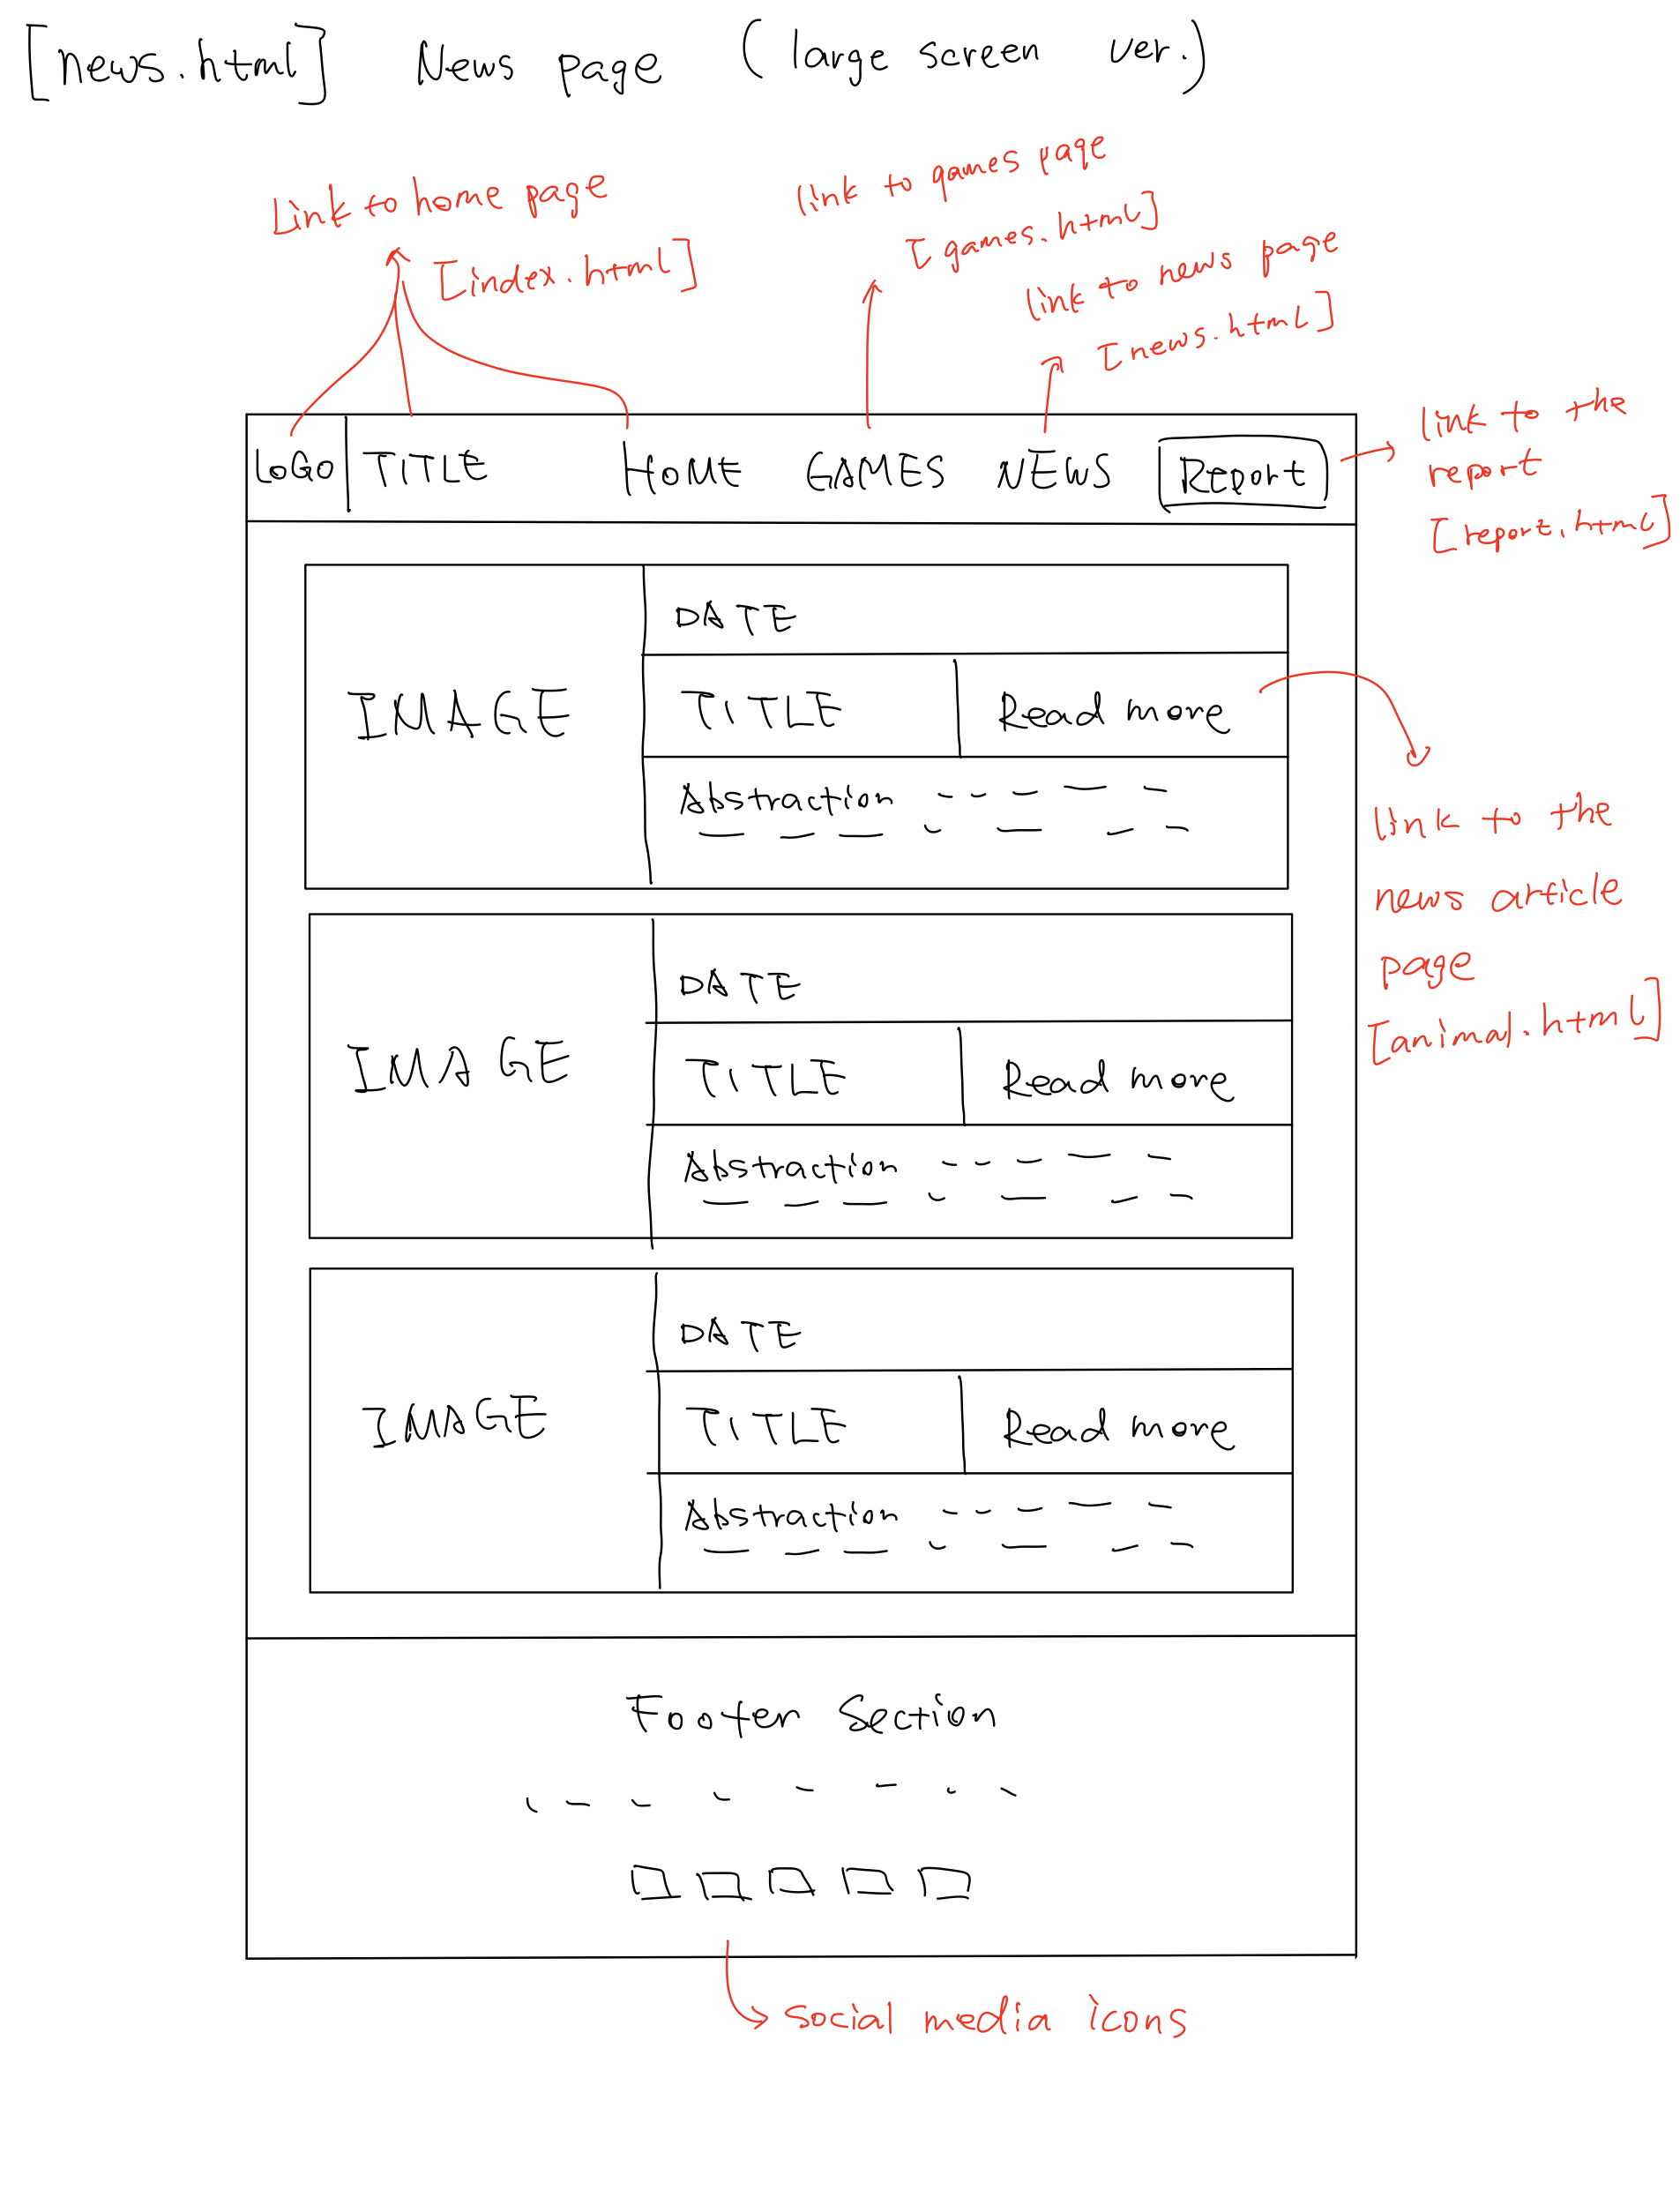 [news.html] News page (large screen ver.)
link to games page
[games.html]
Link to home page
[index.html]
link to news page
[news.html]
LOGO TITLE HOME GAMES NEWS Report
link to the
report
[report.html]
DATE
IMAGE TITLE Read more
Abstraction
link to the
news article
page
[animal.html]
DATE
IMAGE TITLE Read more
Abstraction
DATE
IMAGE TITLE Read more
Abstraction
Footer Section
social media icons